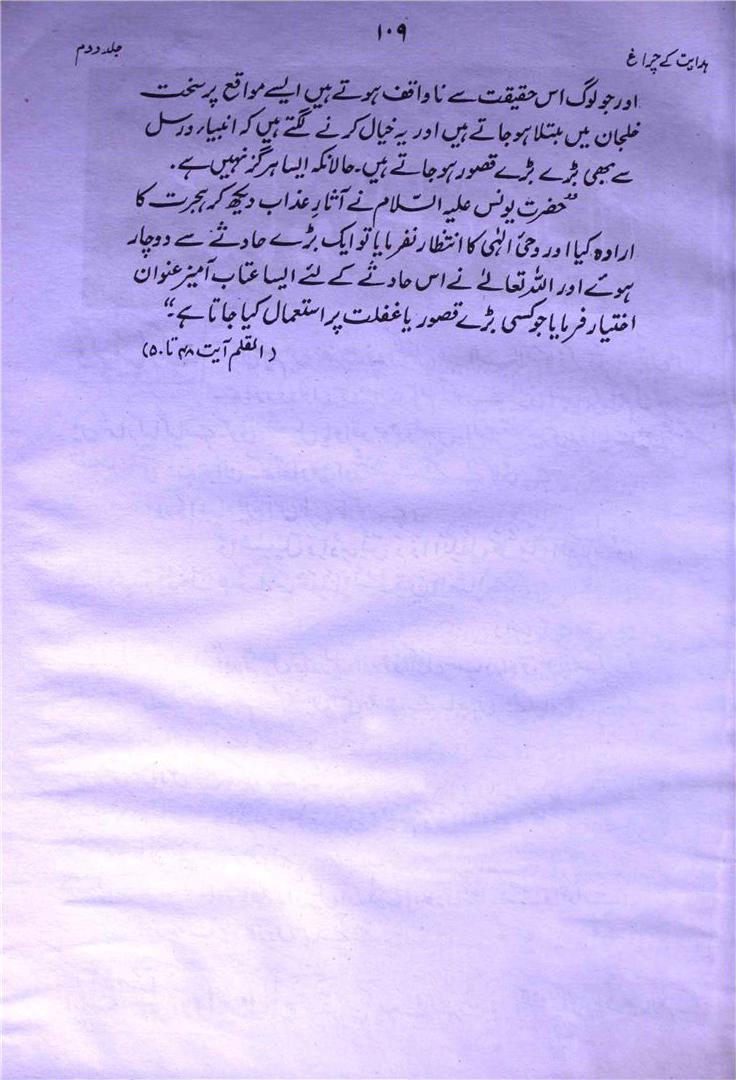 ہدایت کے چراغ ۱۰۹ جلد دوم
اور جو لوگ اس حقیقت سے ناواقف ہوتے ہیں ایسے مواقع پر سخت
خلجان میں مبتلا ہو جاتے ہیں اور یہ خیال کرنے لگتے ہیں کہ انبیاء ورسل
سے بھی بڑے بڑے قصور ہو جاتے ہیں۔ حالانکہ ایسا ہرگز نہیں ہے۔
"حضرت یونس علیہ السّلام نے آثارِ عذاب دیکھ کر ہجرت کا
ارادہ کیا اور وحیٔ الہٰی کا انتظار نہ فرمایا تو ایک بڑے حادثے سے دوچار
ہوئے اور اللہ تعالےٰ نے اس حادثے کے لئے ایسا عتاب آمیز عنوان
اختیار فرمایا جو کسی بڑے قصور یا غفلت پر استعمال کیا جاتا ہے۔"
(القلم آیت ۴۸ تا ۵۰)